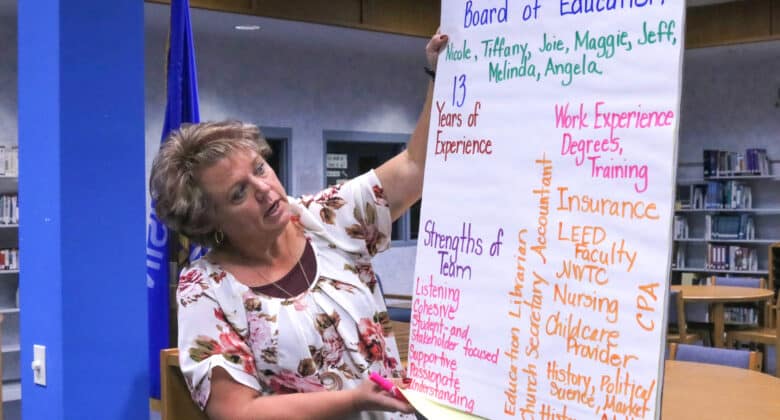 Board of Education:
Nicole, Tiffany, Joie, Maggie, Jeff,
Melinda, Angela
13
Years of
Experience
Work Experience
Degrees,
Training
Strengths of
Team
Listening
Cohesive
Student-and
Stakeholder focused
Supportive
Passionate
Understanding
Education Librarian
Church Secretary Accountant
Insurance
LEED
Faculty
NWTC
Nursing
Childcare
Provider
History, Political
Science, Market
CPA
Hist